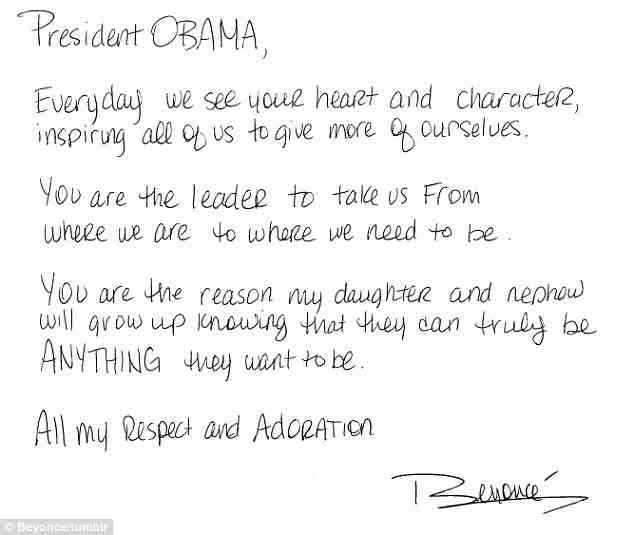 President OBAMA,
Everyday we see your heart and character,
inspiring all of us to give more of ourselves.
You are the leader to take us From
where we are to where we need to be.
You are the reason my daughter and nephew
will grow up knowing that they can truly be
ANYTHING they want to be.
All my Respect and AdoRATIon
Beyoncé
© Beyonce/tumblr